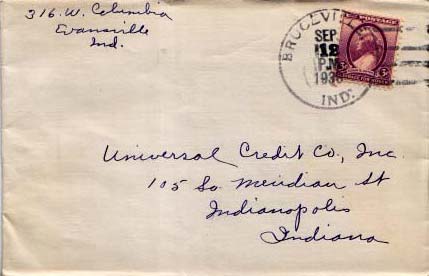 316 W. Columbia
Evansville
Ind.
BRUCEVILLE
SEP
12
P.M.
IND.
POSTAGE
3¢
Universal Credit Co., Inc.
105 So. Meridian St
Indianapolis
Indiana